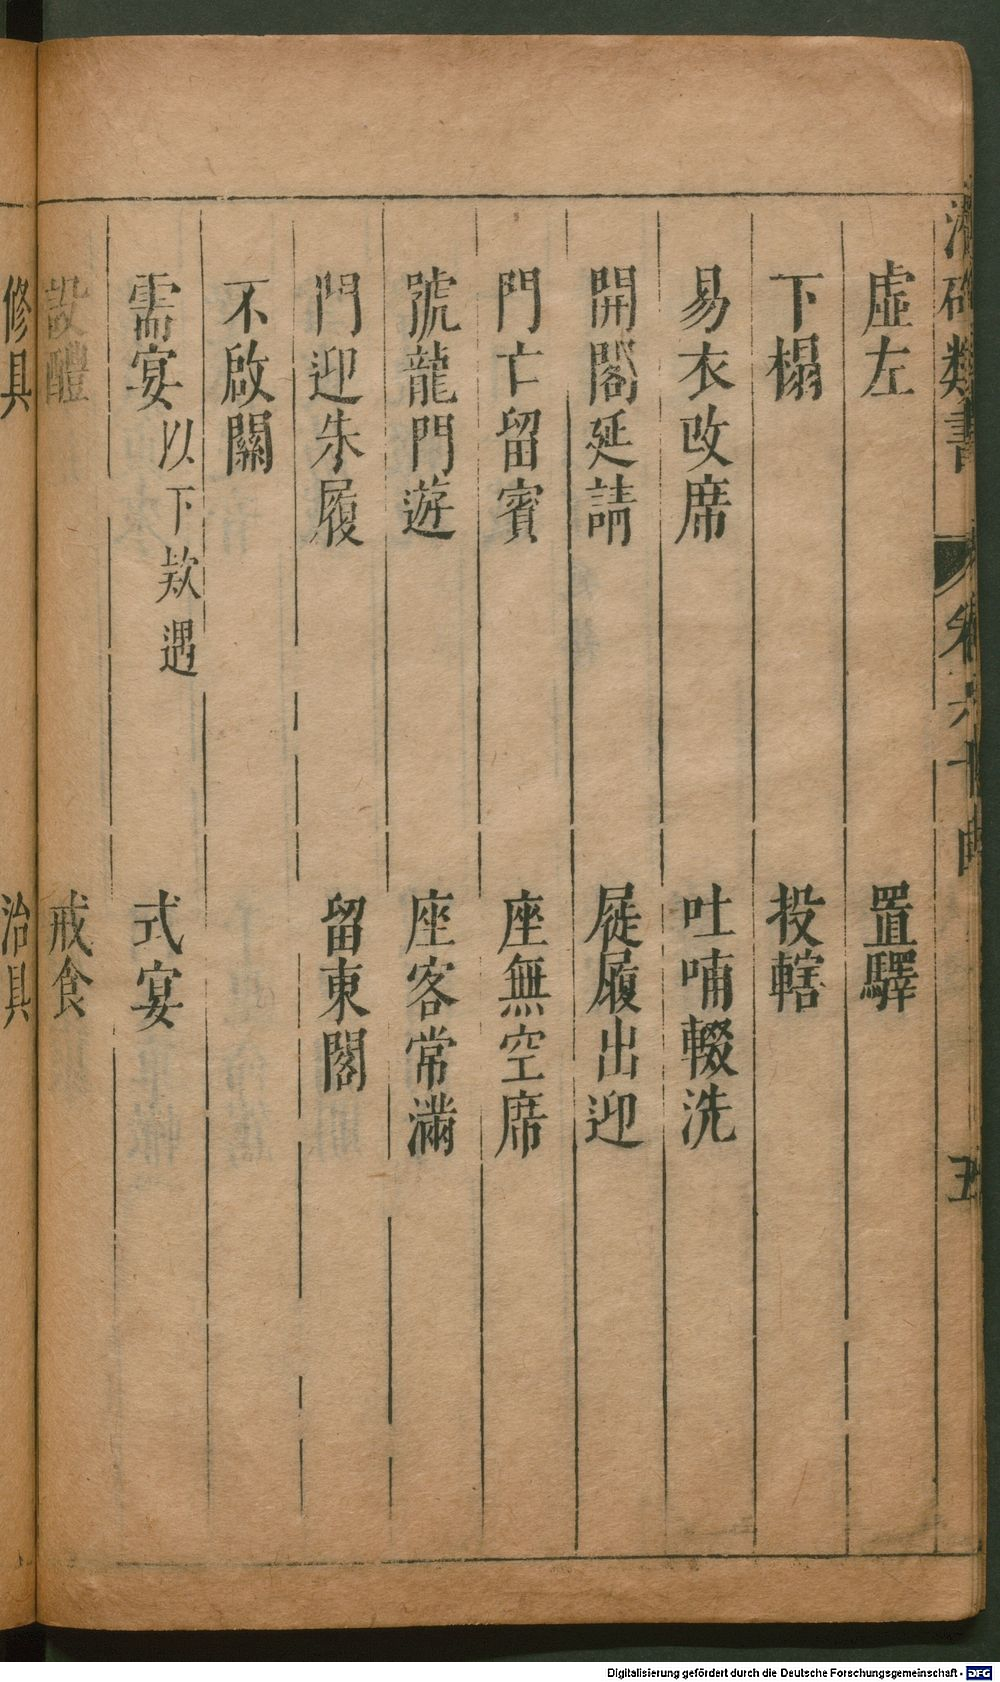 潛確類書 卷六十 五
虛左 置驛
下榻 投轄
易衣改席 吐哺輟洗
開閣延請 屣履出迎
門亡留賓 座無空席
號龍門遊 座客常滿
門迎朱履 留東閣
不啟關
需宴以下欵遇 式宴
設醴 戒食
修具 治具
Digitalisierung gefördert durch die Deutsche Forschungsgemeinschaft - DFG